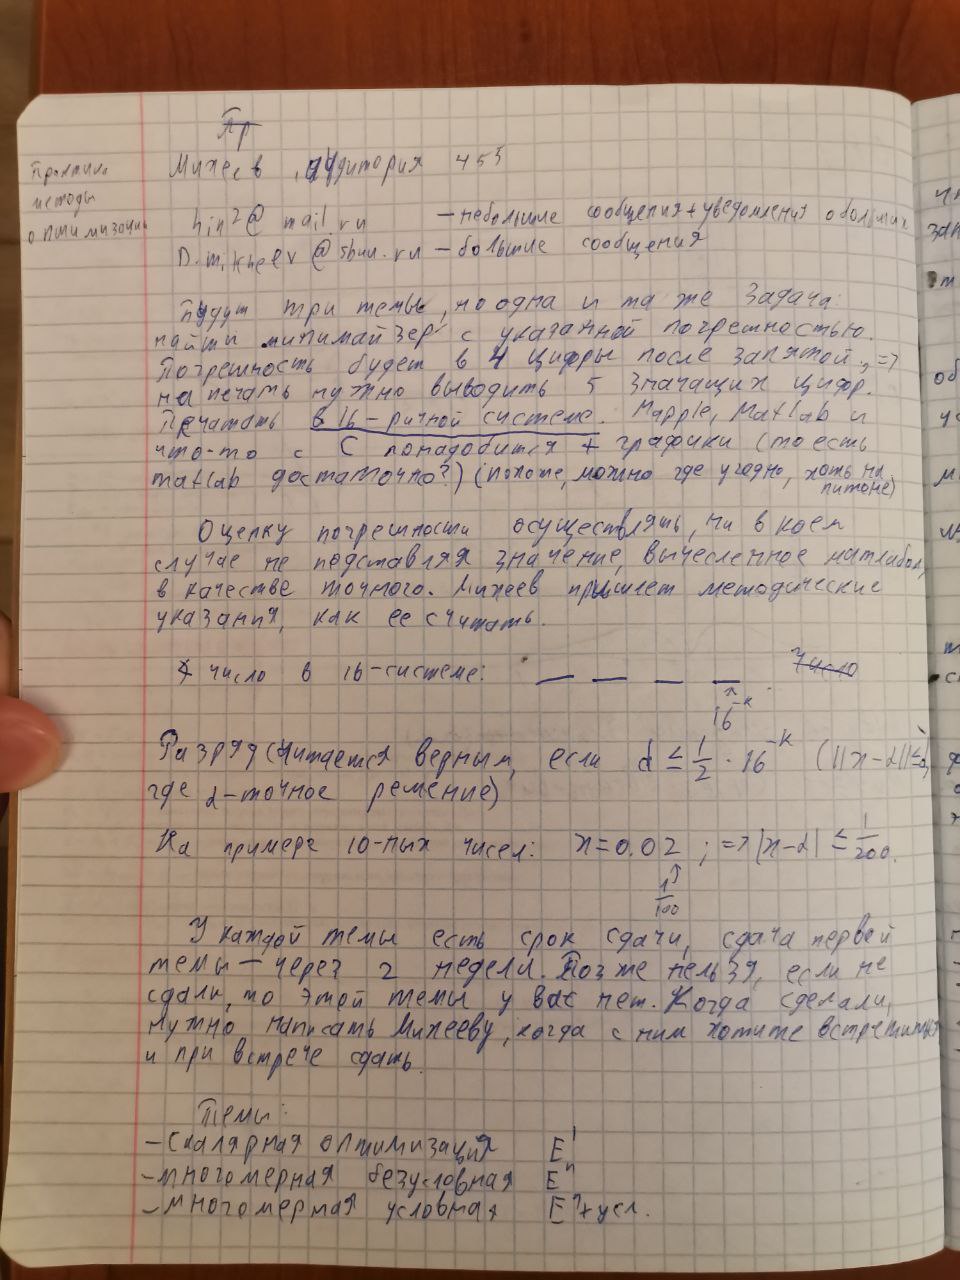 Пр
Практика
методы
оптимизации
Михеев, аудитория 455
hin2@mail.ru — небольшие сообщения + уведомления о больших
D.mikheev@sbun.ru — большие сообщения
Будут три темы, но одна и та же задача:
найти минимайзер с указанной погрешностью.
Погрешность будет в 4 цифры после запятой, =>
на печать нужно выводить 5 значащих цифр.
Печатать в 16-ричной системе. Mapple, Matlab и
что-то с C понадобится + графики (то есть
matlab достаточно?) (похоже, можно где угодно, хоть на
питоне)
Оценку погрешности осуществлять, ни в коем
случае не подставляя значение, вычесленное матлабом,
в качестве точного. Михеев пришлет методические
указания, как ее считать.
число в 16-системе: — — — — Число
16^{-k}
Разряд считается верным, если d ≤ 1/2 · 16^{-k} (||x-α|| ≤ d,
где α-точное решение)
На примере 10-ных чисел: x=0.02 ; => |x-α| ≤ 1/200.
1/100
У каждой темы есть срок сдачи, сдача первой
темы — через 2 недели. Позже нельзя, если не
сдали, то этой темы у вас нет. Когда сделали,
нужно написать Михееву, когда с ним хотите встретиться
и при встрече сдать.
Темы:
- скалярная оптимизация E^1
- многомерная безусловная E^n
- многомерная условная E^n + усл.